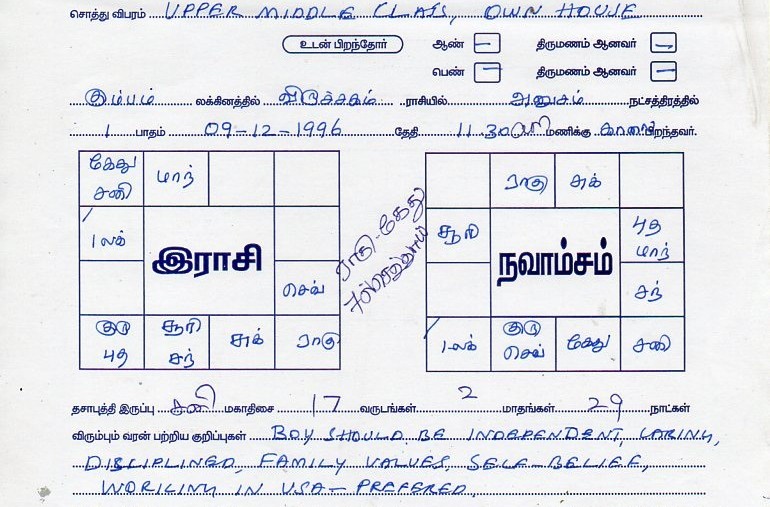 சொத்து விபரம் UPPER MIDDLE CLASS, OWN HOUSE
உடன் பிறந்தோர் ஆண் — திருமணம் ஆனவர் —
பெண் — திருமணம் ஆனவர் —
கும்பம் லக்கினத்தில் விருச்சகம் ராசியில் அனுசம் நட்சத்திரத்தில்
1 பாதம் 09-12-1996 தேதி 11.30 மணிக்கு காலை பிறந்தவர்.
கேது சனி மாந்
லக்
இராசி
செவ்
குரு புத சூரி சந் சுக் ராகு
ராகு-கேது
ராகு சுக்
சூரி புத மாந்
நவாம்சம்
சந்
லக் குரு செவ் கேது சனி
தசாபுத்தி இருப்பு சனி மகாதிசை 17 வருடங்கள் 2 மாதங்கள் 29 நாட்கள்
விரும்பும் வரன் பற்றிய குறிப்புகள் BOY SHOULD BE INDEPENDENT, CARING,
DISCIPLINED, FAMILY VALUES, SELF-BELIEF,
WORKING IN USA – PREFERED.